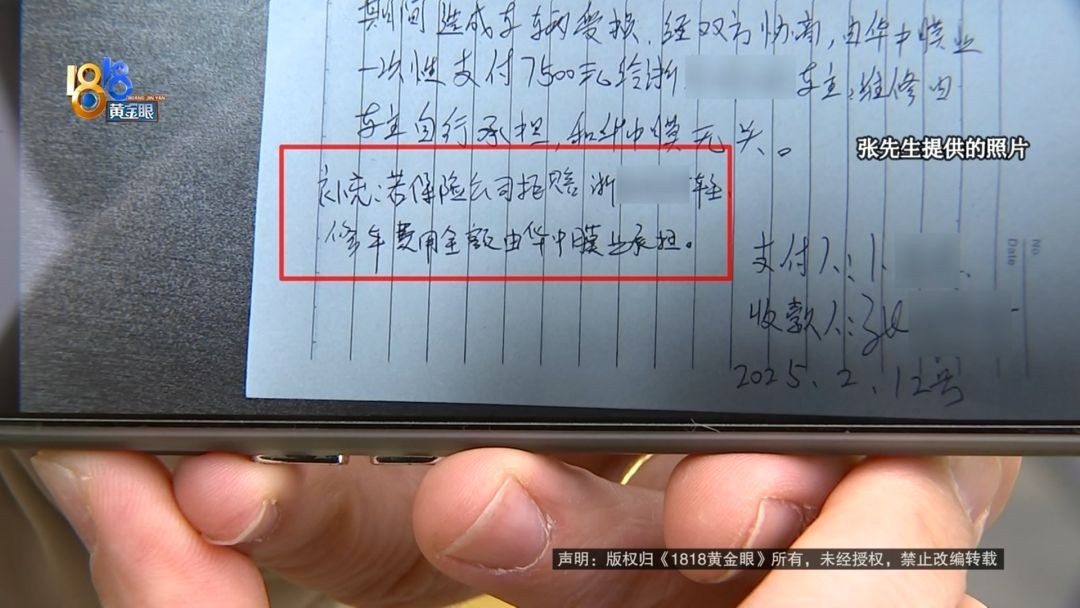 期间造成车辆受损,经双方协商,由华中膜业
一次性支付7500元给浙 车主,维修由
车主自行承担,和华中膜无关。
补充:若保险公司拒赔 浙 车主,
修车费用全额由华中膜业承担。
支付人:
收款人:张
2025.2.12号
No.
Date
1818
HUANG JIN YAN
黄金眼
张先生提供的照片
声明:版权归《1818黄金眼》所有,未经授权,禁止改编转载